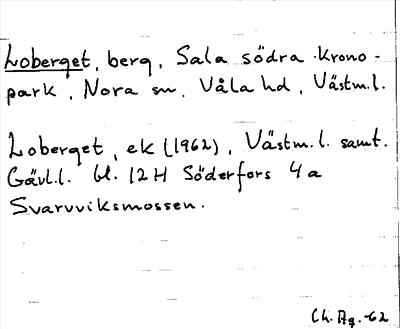 Loberget, berg, Sala södra krono-
park, Nora sn, Våla hd, Västm.l.
Loberget, ek (1962), Västm.l. samt.
Gävl.l. bl. 12H Söderfors 4a
Svarvviksmossen.
Ch. Ag. -62